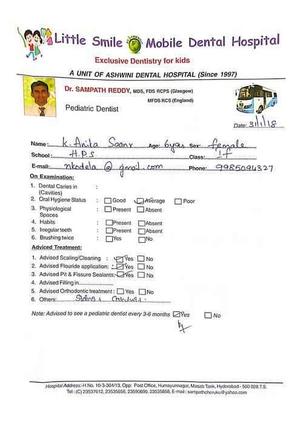 Little Smile Mobile Dental Hospital
Exclusive Dentistry for kids
A UNIT OF ASHWINI DENTAL HOSPITAL (Since 1997)
Dr. SAMPATH REDDY, MDS, FDS RCPS (Glasgow)
MFDS RCS (England)
Pediatric Dentist
Date: 3/1/18
Name: K. Anita Age: 6yrs Sex: female
School: H.P.S Class: 1f
E-mail: nkodela @ gmail.com Phone: 9985094327
On Examination:
1. Dental Caries in :
(Cavities)
2. Oral Hygiene Status : Good Average Poor
3. Physiological : Present Absent
Spaces
4. Habits : Present Absent
5. Irregular teeth : Present Absent
6. Brushing twice : Yes No
Adviced Treatment:
1. Advised Scaling/Cleaning : Yes No
2. Advised Flouride application: Yes No
3. Advised Pit & Fissure Sealants: Yes No
4. Advised Filling in
5. Advised Orthodontic treatment : Yes No
6. Others:
Note: Advised to see a pediatric dentist every 3-6 months Yes No
Hospital Address: H.No. 10-3-304/13, Opp: Post Office, Humayunnagar, Masab Tank, Hyderabad - 500 028 T.S.